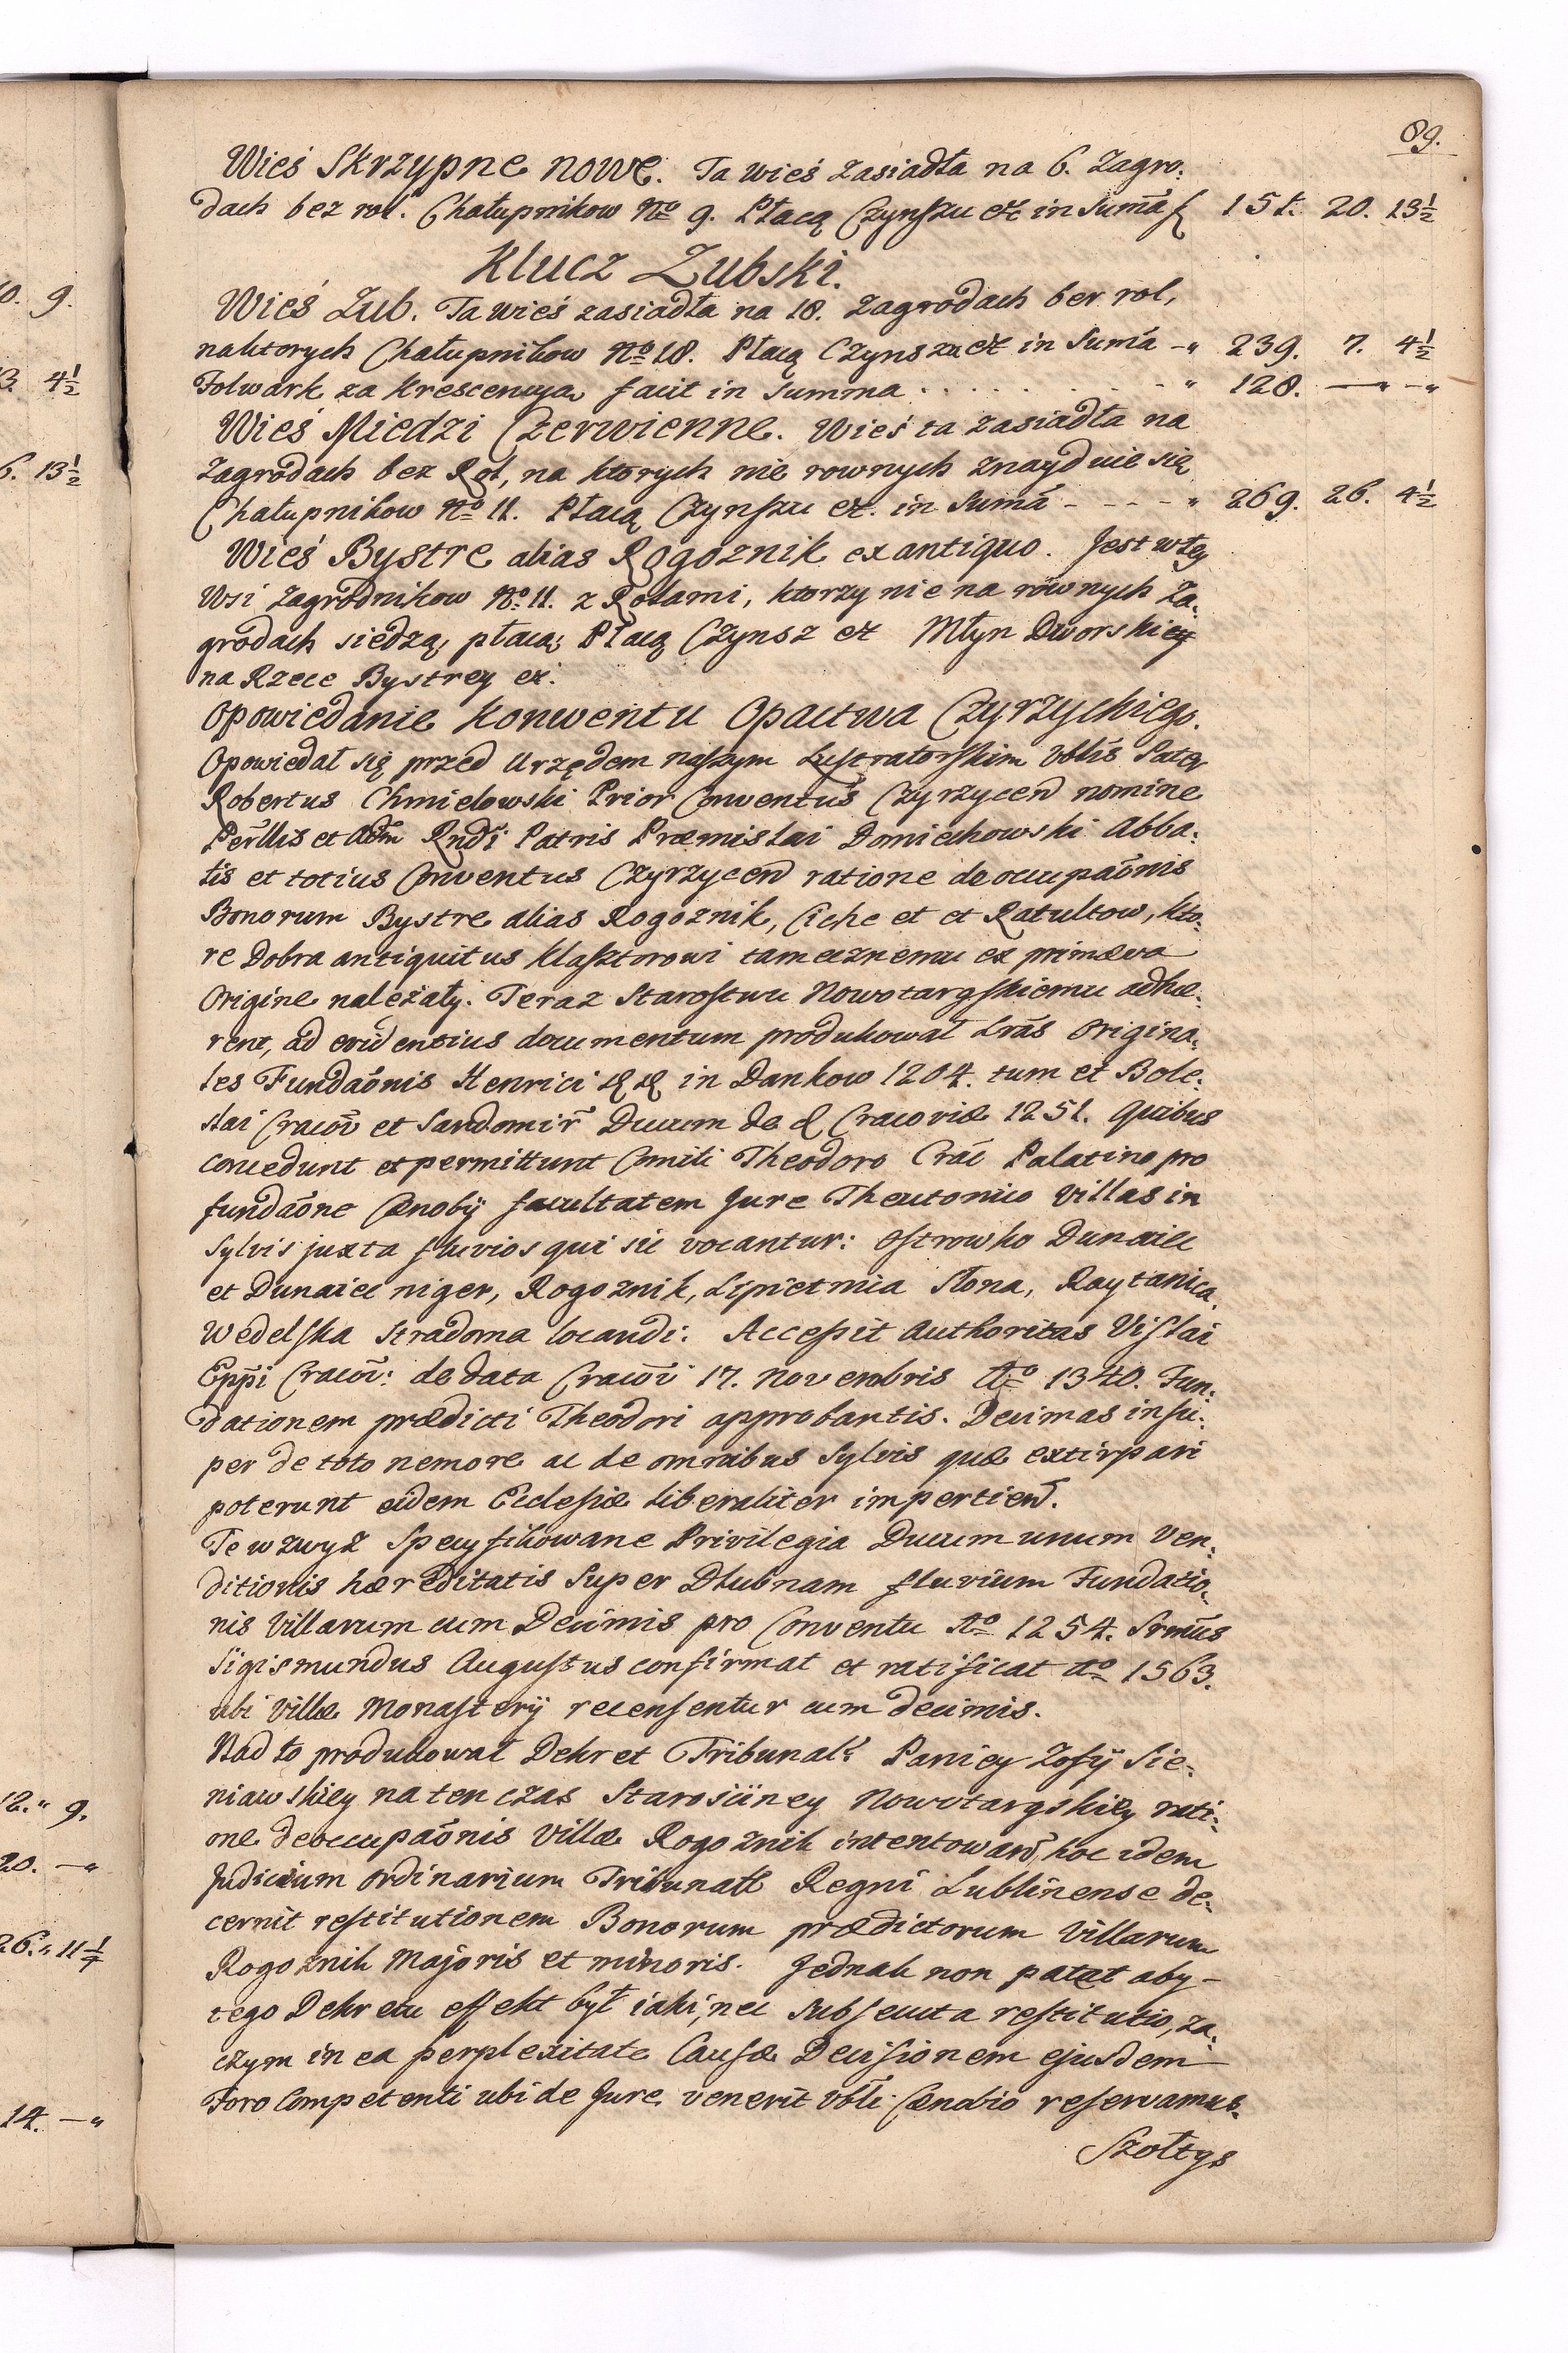 89.
Wieś Skrzypne nowe. Ta wieś zasiadła na 6. Zagro:
dach bez rol. Chałupnikow No 9. Płacą Czynszu &c in Sumā f 151. 20. 13½
Klucz Zubski.
Wieś Zub. Ta wieś zasiadła na 18. Zagrodach bez rol,
naktorych Chałupnikow No 18. Płacą Czynszu &c in Sumā -" 239. 7. 4½
Folwark za Krescencyą facit in Summa . . . . . . - " 128. —" -"
Wieś Miedzi Czerwienne. Wieś ta zasiadła na
Zagrodach bez Rol, na ktorych nie rownych znayduie się
Chałupnikow No 11. Płacą Czynszu &c. in Sumā - - - - " 269. 26. 4½
Wieś Bystre alias Rogoznik ex antiquo. Jest w tey
Wsi Zagrodnikow No 11. z Rolami, ktorzy nie na rownych Za:
grodach siedzą, płacą; Płacą Czynsz &c Młyn Dworskiey
na Rzece Bystrey &c.
Opowiedanie Konwentu Opactwa Czyrzyckiego.
Opowiedał się przed Urzędem naszym Lustratorskim Vblis Pater
Robertus Chmielowski Prior Conventus Czyrzycen nomine
Perllis et Adm Rndi Patris Præmislai Domiechowski Abba:
tis et totius Conventus Czyrzycen ratione deoccupaōnis
Bonorum Bystre alias Rogoznik, Ciche et et Ratultow, kto:
re Dobra antiquitus Klasztorowi tamecznemu ex primæva
Origine należały. Teraz Starostwu Nowotargskiemu adhæ:
rent, ad evidentius documentum produkował Lrās Origina:
les Fundaōnis Henrici && in Dankow 1204. tum et Bole:
slai Cracov̄ et Sandomir̄ Ducum de d Cracoviæ 1251. Quibus
concedunt et permittunt Comiti Theodoro Crac̄ Palatino pro
fundaōne Cænobij facultatem Jure Theutonico Villas in
Sylvis juxta fluvios qui sic vocantur: Ostrowho Dunaiec
et Dunaiec niger, Rogoznik, Lipietnica Słona, Raytanica,
Wedelska Stradoma locandi. Accessit Authoritas Vislai
Epp̄i Cracov̄: de data Cracov̄i 17. Novembris Ao 1340. Fun:
dationem prædicti Theodori approbantis. Decimas insu:
per de toto nemore ac de omnibus Sylvis quæ extirpari
poterunt eidem Ecclesiæ liberaliter impertien̄.
Te w zwyż Specyfikowane Privilegia Ducum unum Ven:
ditionis hæreditatis Super Dłubnam fluvium Fundatio:
nis Villarum cum Decimis pro Conventu Ao 1254. Srmūs
Sigismundus Augustus confirmat et ratificat Ao 1563.
ubi Villæ Monasterij recensentur cum decimis.
Nad to produkował Dekret Tribunal: Paniey Zofij Sie:
niawskiey natenczas Starościney Nowotargskiey rati:
one deoccupaōnis Villæ Rogoznik intentowan̄, hoc idem
Judicium Ordinarium Tribunatt Regni Lublinense de:
cernit restitutionem Bonorum prædictorum Villarum
Rogoznik Majoris et minoris. Jednak non patet aby-
tego Dekretu effekt był iaki, nec subsecuta restitutio, za:
czym in ea perplexitate Causæ Decisionem ejusdem
Foro Competenti ubi de Jure venerit Vbli Cænobio reservamus.
Szołtys
9.
4½
6. 13½
12." 9.
20. —"
26." 11¼
14. —"